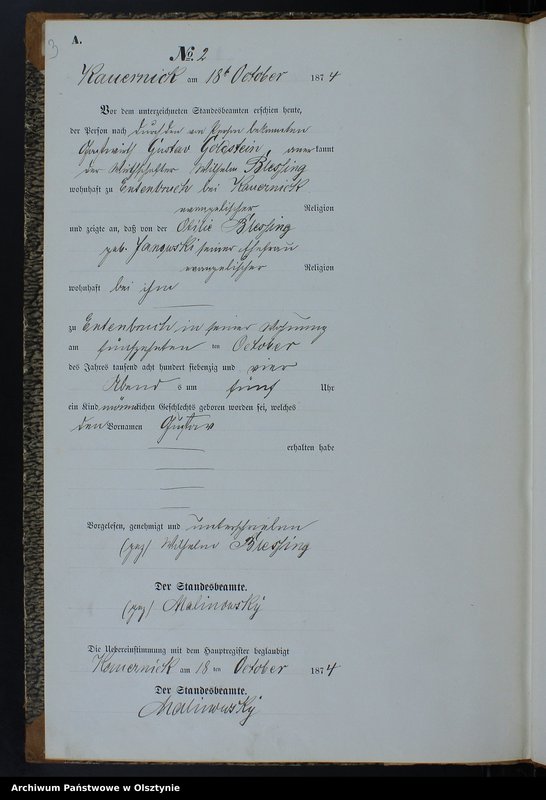 3
A.
No. 2
Kauernick am 18t October 1874
Vor dem unterzeichneten Standesbeamten erschien heute,
der Person nach durch den von Person bekannten
Gastwirth Gustav Golzstein, anerkannt
der Wirthschafter Wilhelm Blessing
wohnhaft zu Entenbruch bei Kauernick
evangelischer Religion
und zeigte an, daß von der Otilie Blessing
geb. Janowski seiner Ehefrau
evangelischer Religion
wohnhaft bei ihm
zu Entenbruch in seiner Wohnung
am fünfzehnten ten October
des Jahres tausend acht hundert siebenzig und vier
Abends um fünf Uhr
ein Kind männlichen Geschlechts geboren worden sei, welches
den Vornamen Gustav
erhalten habe
Vorgelesen, genehmigt und unterschrieben
(gez) Wilhelm Blessing
Der Standesbeamte.
(gez) Malinowsky
Die Uebereinstimmung mit dem Hauptregister beglaubigt
Kauernick am 18 ten October 1874
Der Standesbeamte.
Malinowsky
Archiwum Państwowe w Olsztynie